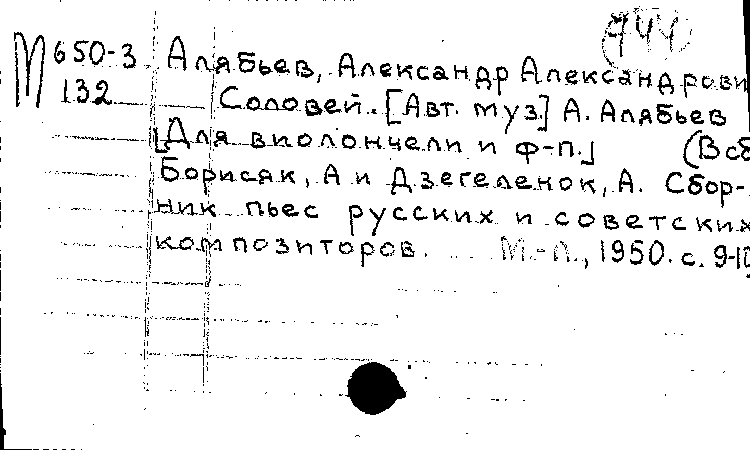 744
М 650-3 Алябьев, Александр Александрови
132 Соловей. [Авт. муз.] А. Алябьев
[Для виолончели и ф-п.] (В сб
Борисяк, А и Дзегеленок, А. Сбор-
ник пьес русских и советских
композиторов. М.-Л., 1950. с. 9-10